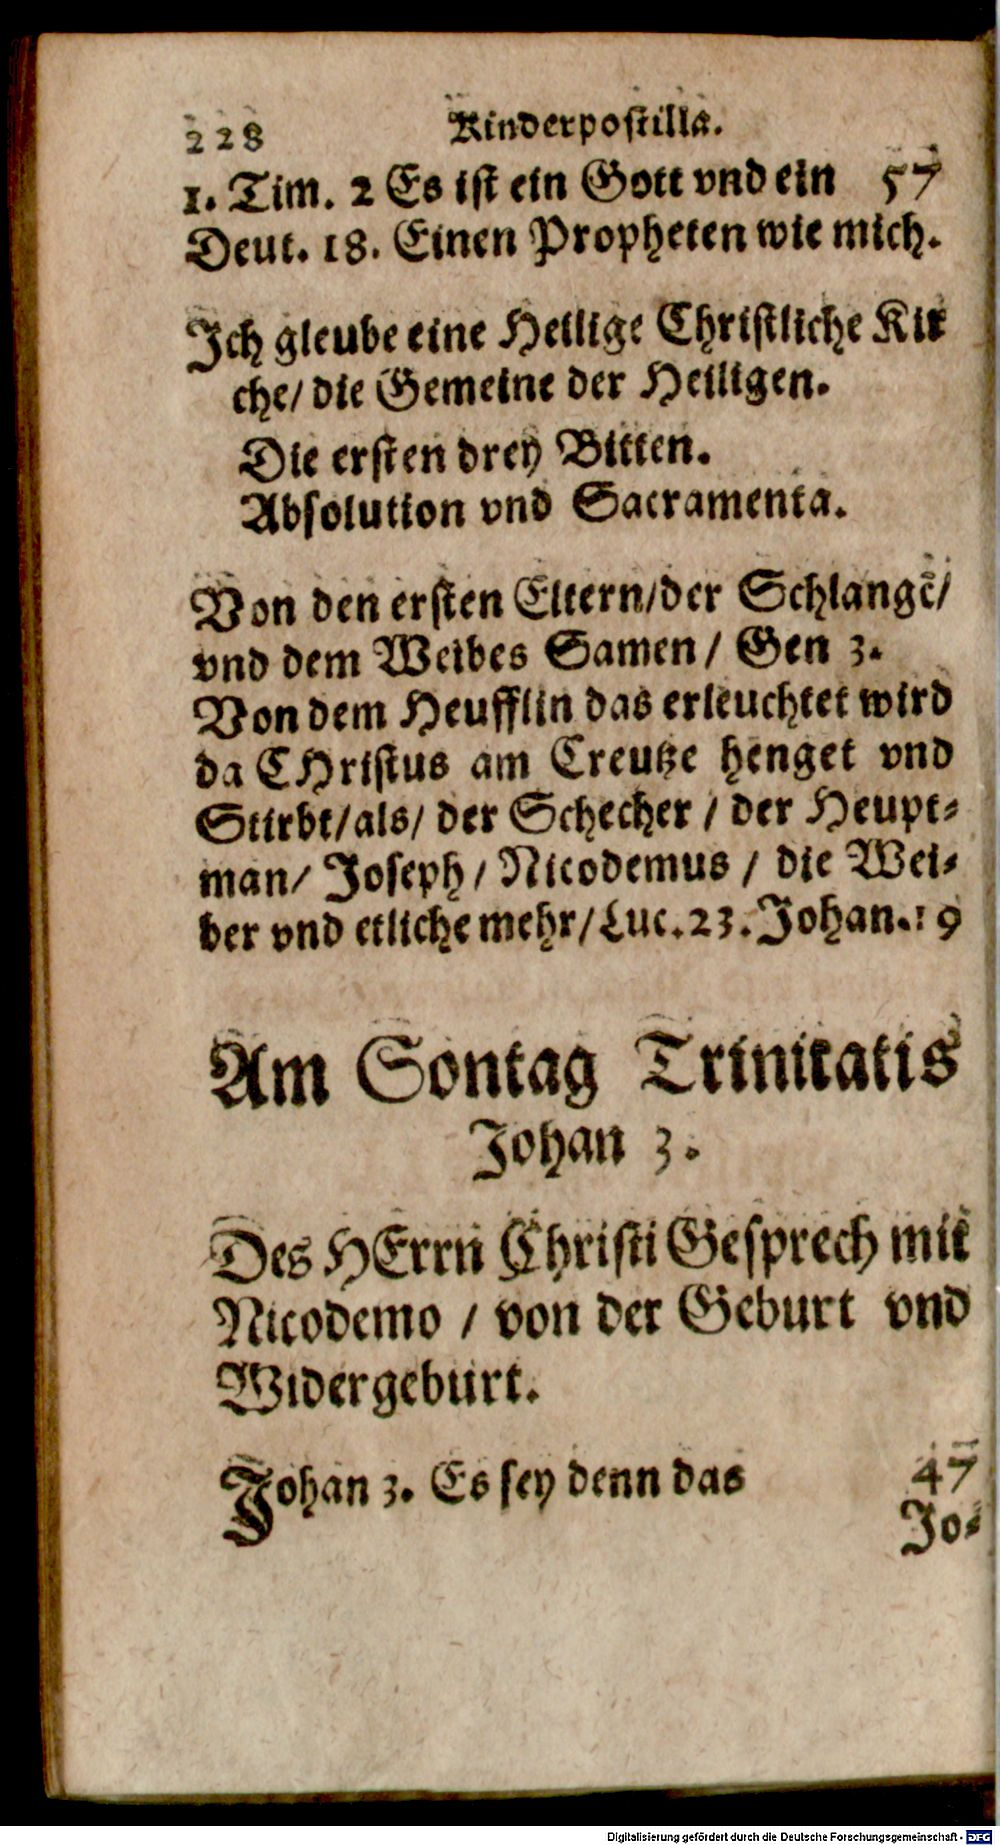 228 Kinderpostilla.
1. Tim. 2 Es ist ein Gott vnd ein 57
Deut. 18. Einen Propheten wie mich.
Ich gleube eine Heilige Christliche Kir
che/ die Gemeine der Heiligen.
Die ersten drey Bitten.
Absolution vnd Sacramenta.
Von den ersten Eltern/der Schlangẽ/
vnd dem Weibes Samen / Gen 3.
Von dem Heufflin das erleuchtet wird
da CHristus am Creutze henget vnd
Stirbt/als/ der Schecher / der Heupt-
man/ Joseph / Nicodemus / die Wei-
ber vnd etliche mehr/Luc. 23. Johan. 19
Am Sontag Trinitatis
Johan 3.
Des HErrn Christi Gesprech mit
Nicodemo / von der Geburt vnd
Widergeburt.
Johan 3. Es sey denn das 47
Jo-
Digitalisierung gefördert durch die Deutsche Forschungsgemeinschaft - DFG